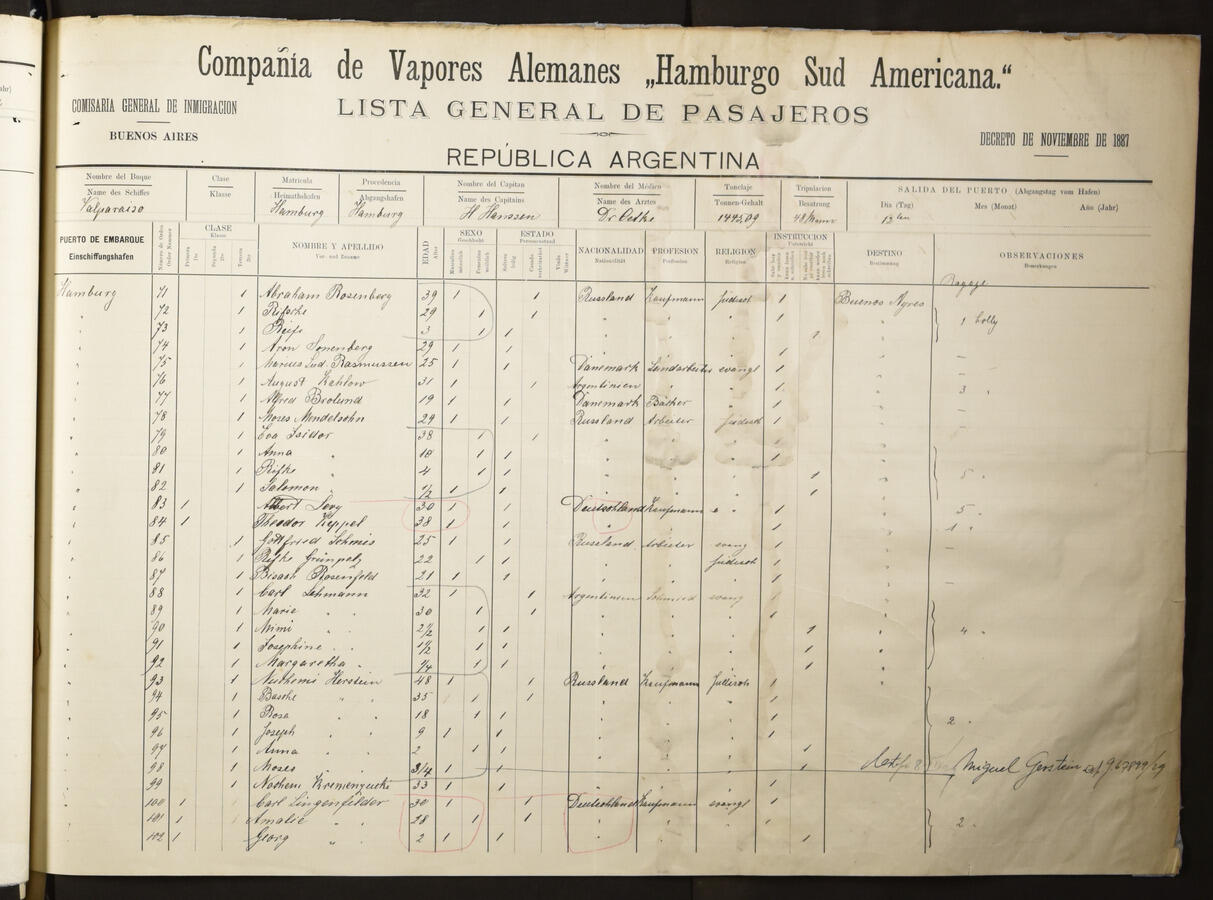 Compañía de Vapores Alemanes „Hamburgo Sud Americana."
COMISARIA GENERAL DE INMIGRACION
BUENOS AIRES
LISTA GENERAL DE PASAJEROS
DECRETO DE NOVIEMBRE DE 1887
REPÚBLICA ARGENTINA
Nombre del Buque Clase Matricula Procedencia Nombre del Capitan Nombre del Médico Tonelaje Tripulacion SALIDA DEL PUERTO (Abgangstag vom Hafen)
Name des Schiffes Klasse Heimathshafen Abgangshafen Name des Capitains Name des Arztes Tonnen-Gehalt Besatzung Dia (Tag) Mes (Monat) Año (Jahr)
Valparaiso Hamburg Hamburg H Hanssen Dr 48 Mann 13
PUERTO DE EMBARQUE Einschiffungshafen CLASE Klasse NOMBRE Y APELLIDO EDAD Alter SEXO Geschlecht ESTADO Personenstand NACIONALIDAD Nationalität PROFESION Profession RELIGION Religion INSTRUCCION Unterricht DESTINO Bestimmung OBSERVACIONES Bemerkungen
Hamburg 71 1 Abraham Rosenberg 39 1 1 Russland Kaufmann jüdisch 1 Buenos Ayres
" 72 1 29 1 1 " " " 1 " 1 holly
" 73 1 3 1 1 " " " 1 "
" 74 1 Aron Sonenberg 29 1 1 " " " 1 " –
" 75 1 Marius Lud. Rasmussen 25 1 1 Dänemark Landarbeiter evangl 1 " –
" 76 1 August Kahlow 31 1 1 Argentinien " " 1 " 3 "
" 77 1 Alfred Brolund 19 1 1 Dänemark Bäcker " 1 " –
" 78 1 Moses Mendelsohn 29 1 1 Russland Arbeiter jüdisch 1 " –
" 79 1 Eva Isidor 38 1 1 " " " 1 "
" 80 1 Anna " 10 1 1 " " " 1 "
" 81 1 Rifke " 4 1 1 " " " 1 " 5 "
" 82 1 Salomon " 1/2 1 1 " " " 1 "
" 83 1 Albert Levy 30 1 1 Deutschland Kaufmann " 1 " 5 "
" 84 1 Theodor Keppel 38 1 1 " " 1 " 1 "
" 85 1 Gottfried 25 1 1 Russland Arbeiter evang 1 " –
" 86 1 Rifke 22 1 1 " " jüdisch 1 " –
" 87 1 Rosenfeld 21 1 1 " " " 1 " –
" 88 1 Carl Lehmann 32 1 1 Argentinien Schmied evang 1 "
" 89 1 Marie " 30 1 1 " " " 1 "
" 90 1 Mimi " 2 1/2 1 1 " " " 1 " 4 "
" 91 1 Josephine " 1 1/2 1 1 " " " 1 "
" 92 1 Margaretha " 1/4 1 1 " " " 1 "
" 93 1 Herstein 48 1 1 Russland Kaufmann 1 "
" 94 1 Basche " 35 1 1 " " " 1 "
" 95 1 Rosa " 18 1 1 " " " 1 " 2 "
" 96 1 Joseph " 9 1 1 " " " 1 "
" 97 1 Anna " 2 1 1 " " " 1 "
" 98 1 Moses " 3/4 1 1 " " " 1 " Miguel Gerstein
" 99 1 Nochem 33 1 1 " " " 1 "
" 100 1 Carl Lingenfelder 30 1 1 Deutschland Kaufmann evangl 1 "
" 101 1 Amalie " 28 1 1 " " " 1 " 2 "
" 102 1 Georg " 2 1 1 " " " 1 "